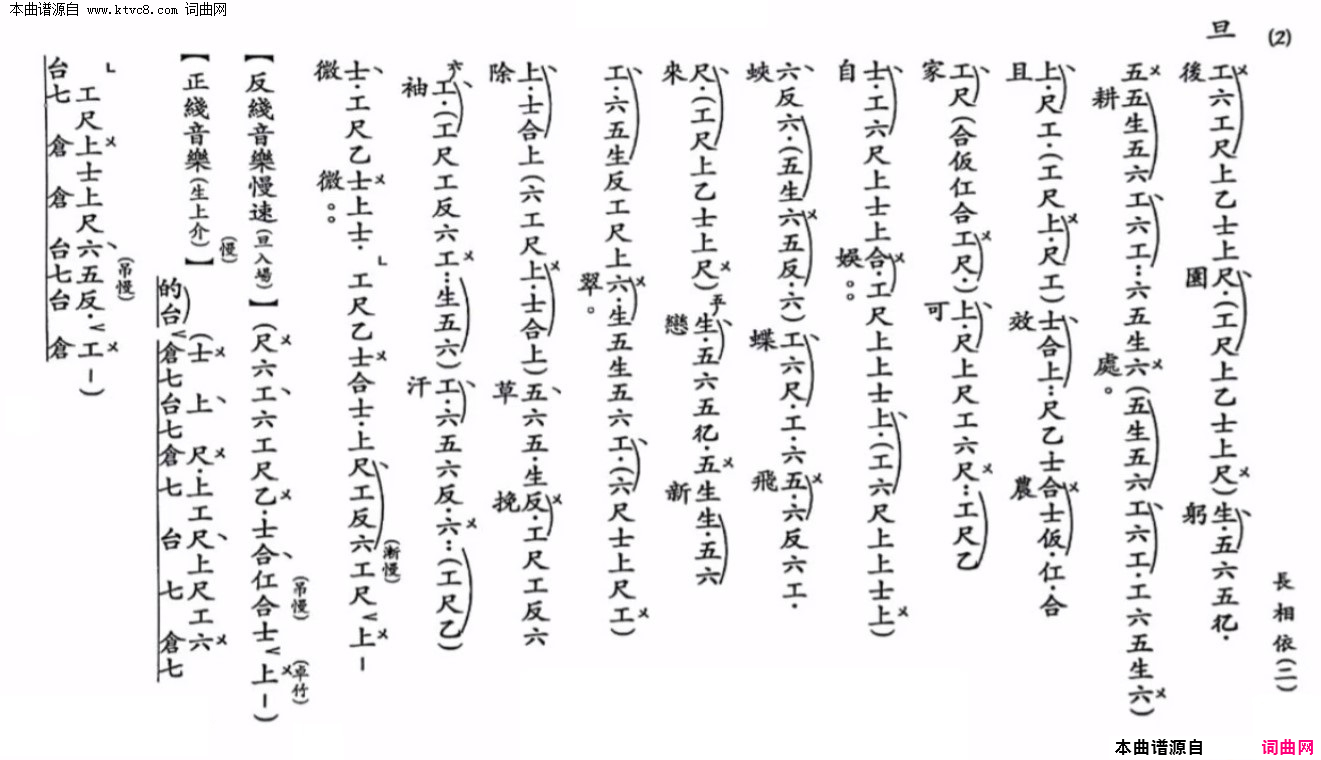 本曲谱源自 www.ktvc8.com 词曲网
(2)
長相依(二)
旦
後 園 躬
工六工尺上乙士上尺·(工尺上乙士上尺)生·五六五亿·
耕 處。
五五生五六工六工:六五生六(五生五六工六工·工六五生六)
且 效 農
上·尺工·(工尺上·尺工)士合上:尺乙士合士仮·仜·合
家 可
工尺(合仮仜合工尺·)上·尺上尺工六尺:工尺乙
自 娛。。
士·工六尺上士上合·工尺上上士上·(工六尺上上士上)
蛺 蝶 飛
六反六·(五生六五反·六)工六尺·工·六五·六反六工·
來 戀 新
尺·(工尺上乙士上尺)乎生·五六五亿·五生生·五六
翠。
工·六五生反工尺上六·生五生五六工·(六尺士上尺工)
除 草 挽
上·士合上(六工尺上·士合上)五六五·生反·工尺工反六
袖 汗
六工·(工尺工反六工:生五六)工·六五六反·六:(工尺乙)
微 微。。
士·工尺乙士上士·工尺乙士合士·上尺工反六工尺上–
(漸慢)
【反綫音樂慢速(旦入場)】(尺六工六工尺乙·士合仜合士上–)
(吊慢) (卓竹)
【正綫音樂(生上介)】
(慢)
(士上尺·上工尺上尺工六
的台倉七台七倉七台七倉七
工尺上士上尺六五反·工–)
(吊慢)
台七倉倉台七台倉
本曲谱源自 词曲网